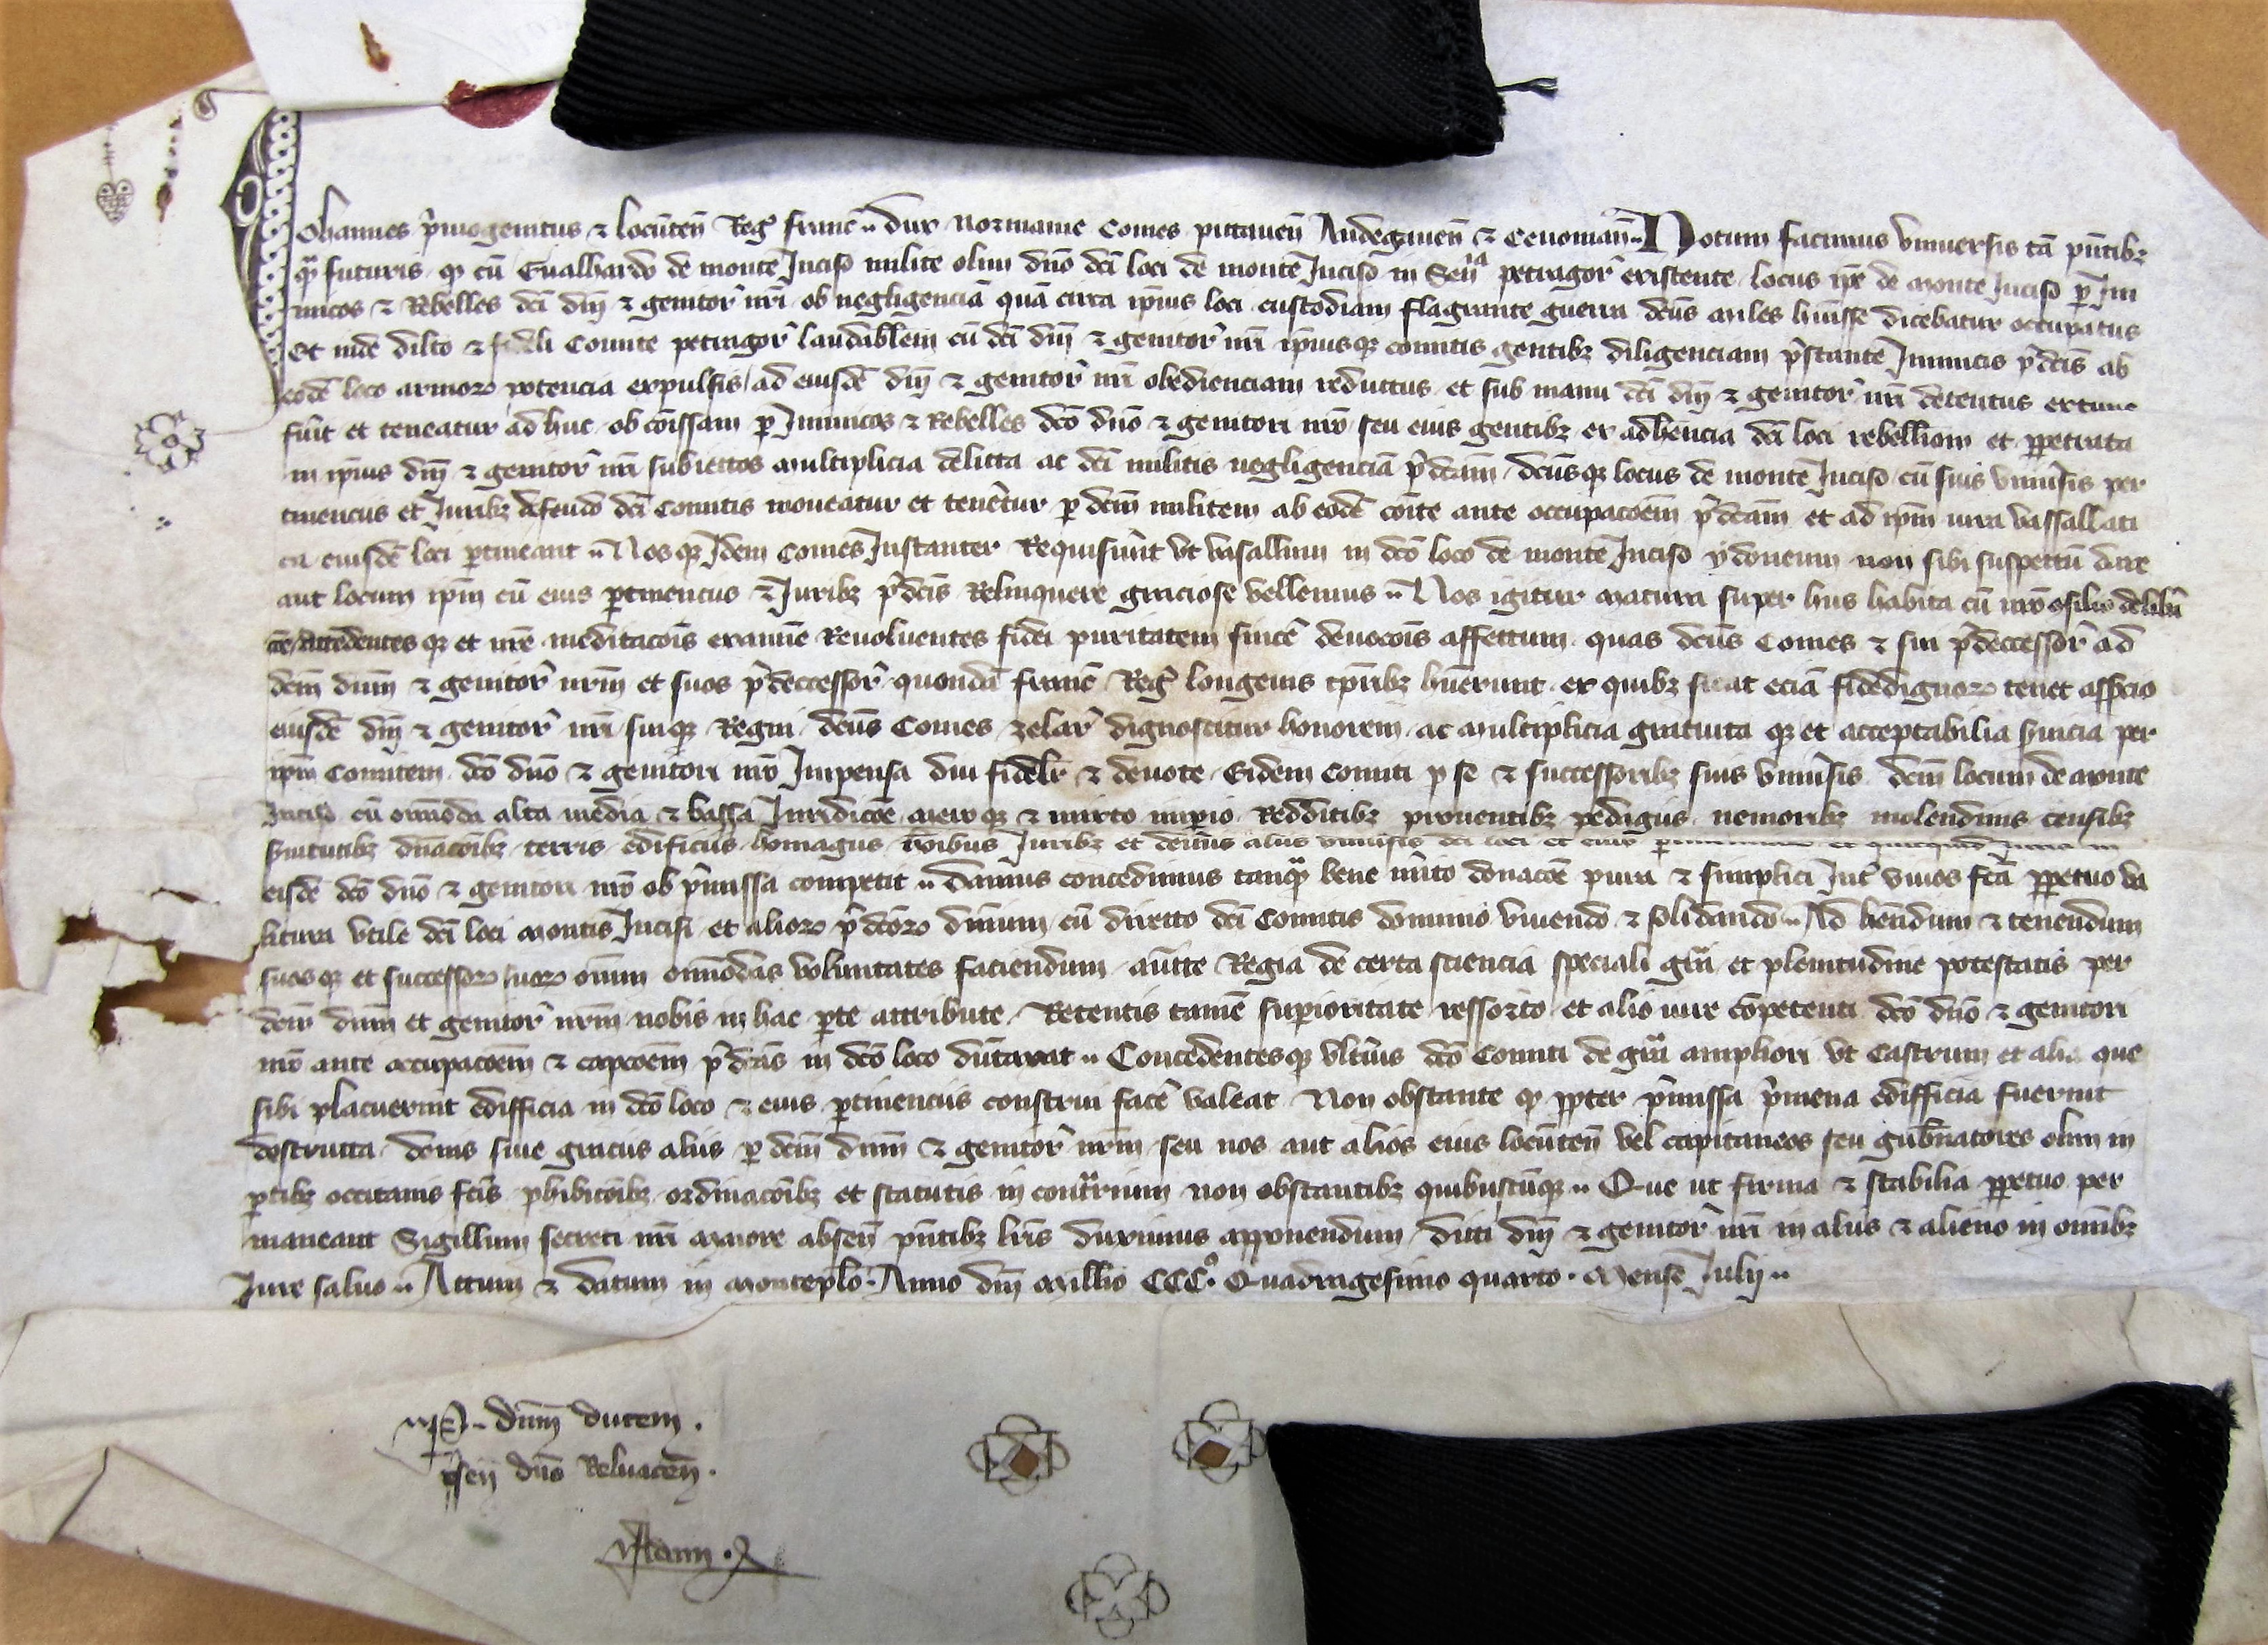 Johannes p̉mogenitus & locūteñ Reg̉ franc̃ .. dux Normanie Comes pictaueñ Andegaueñ & Cenomañ .. Notum facimus vniuersis tā p̃ntibꝫ
qᷓ futuris qꝫ cū Gualhardo de monte Inciso milite olim dño dc̃i loci de monte Inciso in Señia petragor̉ existente locus ip̃e de monte Inciso ꝑ Ini
micos & Rebelles dc̃i dñi & genitor̉ nr̃i ob negligenciā quā circa ip̃ius loci custodiam flagrante guerra dc̃us miles hũisse dicebatur occupatus
Et inde dilc̃o & fideli Comite petragor̉ laudablem cū dc̃i dñi & genitor̉ nr̃i ip̃iusqꝫ comitis gentibꝫ diligenciam p̉stante Inimicis p̉dc̃is ab
eodē loco armoꝝ potencia expulsis ad eiusdē dñi & genitor̉ nr̃i obedienciam reductus et sub manu dc̃i dñi & genitor̉ nr̃i detentus extunc
fũit et teneatur ad huc ob cõissam ꝑ Inimicos & Rebelles dc̃o dño & genitori nr̃o seu eius gentibꝫ ex adh̃encia dc̃i loci rebelliom et ꝑpetrata
in ip̃ius dñi & genitor̉ nr̃i subiectos multiplicia delicta ac dc̃i militis negligenciā p̉dc̃am dc̃usqꝫ locus de monte Inciso cū suis vniũsis per
tinenciis et Juribꝫ de feudo dc̃i Comitis moueatur et teñetur ꝑ dc̃m militem ab eodē cõite ante occupacõem p̉dc̃am et ad ip̃m iura vassallati
ca eiusdē loci ꝑtineant .. Nosqꝫ Idem Comes Instanter Requisiũit vt vasallum in dc̃o loco de monte Inciso ydoneum non sibi suspectū dare
aut locum ip̃m cū eius ꝑtinenciis & Juribꝫ p̉dc̃is Relinquere graciose vellemus .. Nos igitur matura super hiis habita cū nr̃o ꝯsilio delib̃a
cõe attendentes qꝫ et nr̃e meditacõis examine Reuoluentes fidei puritatem sinc̃e deuocõis affectum quas dc̃us Comes & sui p̉decessor̉ ad
dc̃m dñm & genitor̉ nr̃m et suos p̉decessor̉ quondā franc̃ Reg̉ longeuis tp̃ribꝫ hũerunt ex quibꝫ sicut eciā fidedignoꝝ tenet assercio
eiusdē dñi & genitor̉ nr̃i suiqꝫ Regni dc̃us Comes zelar̉ dignoscitur honorem ac multiplicia gratuita qꝫ et acceptabilia s̃uicia per
ip̃m Comitem dc̃o dño & genitori nr̃o Impensa diu fidelr̃ & deuote Eidem Comiti ꝓ se & successoribꝫ suis vniũsis dc̃m locum de monte
Inciso cū om̃oda alta media & bassa Juridicõe meroqꝫ & mixto imꝑio Redditibꝫ prouentibꝫ pedagiis nemoribꝫ molendinis censibꝫ
s̃uitutibꝫ dñacõibꝫ terris edificiis homagiis Juribꝫ et dc̃is aliis vniũsis dc̃i loci et eius
eisdē dc̃o dño & genitori nr̃o ob p̉missa competit .. Damus concedimus tanqᷓ bene m̃ito donacõe pura & simplici Int̃ viuos fc̃a ꝑpetuo va
litura vtile dc̃i loci montis Incisi et alioꝝ p̉dc̃oꝝ dñium cū directo dc̃i Comitis dominio viuendo & solidando .. Ad h̃endum & tenendum
suosqꝫ et successoꝝ suoꝝ om̃m om̃odas voluntates faciendum auc̃te Regia de certa sciencia speciali gr̃a et plenitudine potestatis per
dc̃m dñm et genitor̉ nr̃m nobis in hac ꝑte attribute Retentis tamē suꝑioritate ressorto et alio iure cõpetenti dc̃o dño & genitori
nr̃o ante occupacõem & capcõem p̉dc̃as in dc̃o loco dũtaxat .. Concedentesqꝫ vlt̃ius dc̃o Comiti de gr̃a ampliori vt Castrum et alia que
sibi placuerint edifficia in dc̃o loco & eius ꝑtinenciis construi fac̃e valeat Non obstante qꝫ ꝓpter p̉missa p̉mena edifficia fuerint
destructa donis siue graciis aliis ꝑ dc̃m dñm & genitor̉ nr̃m seu nos aut alios eius locūteñ vel capitaneos seu gub̃natores olim in
ꝑtibꝫ occitanis fc̃is ꝓhibicõibꝫ ordinacõibꝫ et statutis in contᷓrium non obstantibꝫ quibuscūqꝫ .. Que ut firma & stabilia ꝑpetuo per
maneant Sigillum secreti nr̃i maiore abseñ p̃ntibꝫ lr̃is duximus apponendum dicti dñi & genitor̉ nr̃i in aliis & alieno in om̃ibꝫ
Jure saluo .. Actum & datum in montepl̃o . Anno dñi millio CCCº. Quadragesimo quarto . Mense Julij ..
Ꝑ .. dñm ducem .
p̃señ dño Beluaceñ .
Adam .